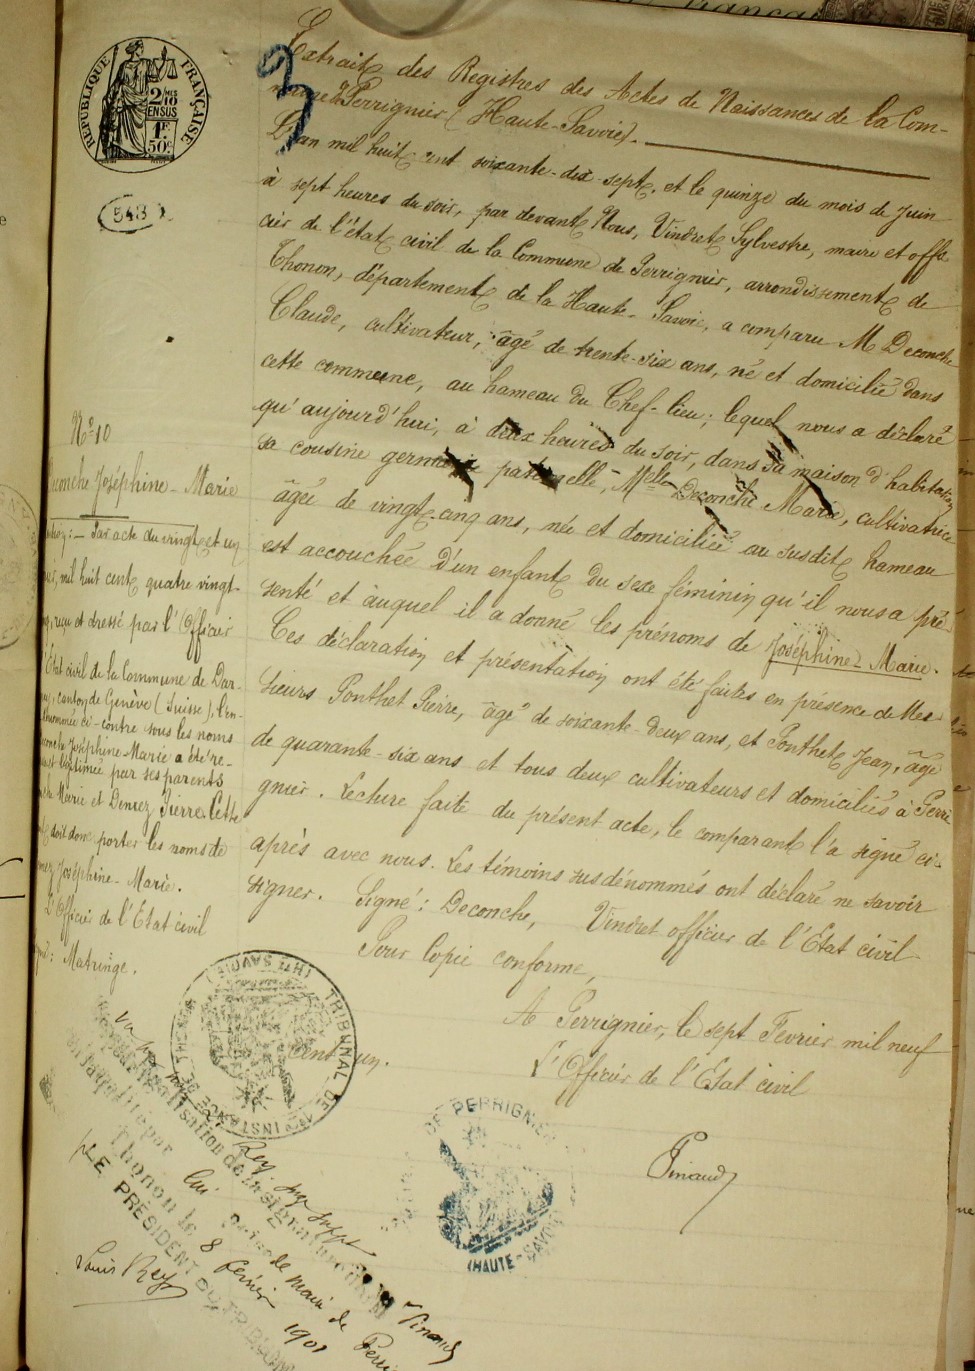 RÉPUBLIQUE FRANÇAISE
2/10 MES
EN SUS
1F.
50c
548
3
Extrait des Registres des Actes de Naissances de la Com-
mune de Perrignier (Haute-Savoie).
L'an mil huit cent soixante-dix-sept, et le quinze du mois de Juin
à sept heures du soir, par devant Nous, Vindret Sylvestre, maire et offi-
cier de l'état civil de la Commune de Perrignier, arrondissement de
Thonon, département de la Haute-Savoie, a comparu M. Deconche
Claude, cultivateur, âgé de trente-six ans, né et domicilié dans
cette commune, au hameau du Chef-lieu; lequel nous a déclaré
qu'aujourd'hui, à deux heures du soir, dans sa maison d'habitation
sa cousine germaine paternelle, Melle Deconche Marie, cultivatrice
âgée de vingt-cinq ans, née et domiciliée au susdit hameau
est accouchée d'un enfant du sexe féminin qu'il nous a pré-
senté et auquel il a donné les prénoms de Joséphine-Marie.
Ces déclaration et présentation ont été faites en présence de Mes-
sieurs Ponthet Pierre, âgé de soixante-deux ans, et Ponthet Jean, âgé
de quarante-six ans et tous deux cultivateurs et domiciliés à Perri
gnier. Lecture faite du présent acte, le comparant l'a signé ci-
après avec nous. Les témoins susdénommés ont déclaré ne savoir
signer. Signé: Deconche, Vindret officier de l'Etat civil
Pour Copie conforme,
A Perrignier, le sept Février mil neuf
cent un.
L'Officier de l'Etat civil
Pinaud
No 10
Joséphine-Marie
Par acte du vingt et un
mil huit cent quatre vingt-
reçu et dressé par l'Officier
Etat civil de la Commune de Dar-
canton de Genève (Suisse), l'en-
ci-contre sous les noms
Joséphine-Marie a été re-
légitimée par ses parents
Marie et Dumez Pierre. Cette
doit donc porter les noms de
Joséphine-Marie.
L'Officier de l'Etat civil
Matringe.
TRIBUNAL DE 1ERE INSTANCE DE THONON (HTE SAVOIE)
DE PERRIGNIER
(HAUTE-SAVOIE)
légalisation de la signature
Thonon le 8 Février 1901
LE PRÉSIDENT DU TRIBUNAL
Louis Rey
Pinaud